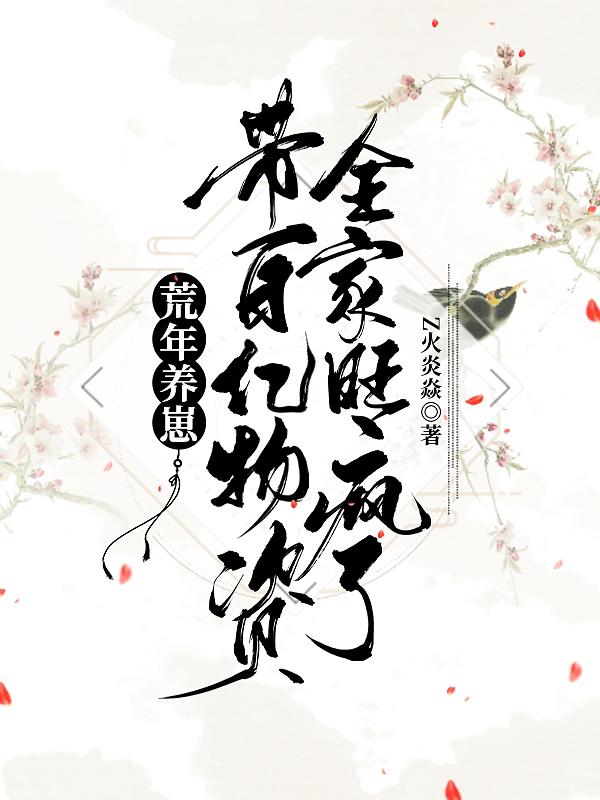 荒年养崽
带百亿物资
全家旺疯了
Z火炎焱◎著